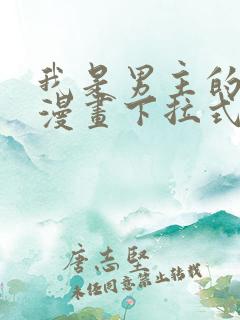 我是男主的
漫畫下拉式
唐志堅
未经同意禁止转载